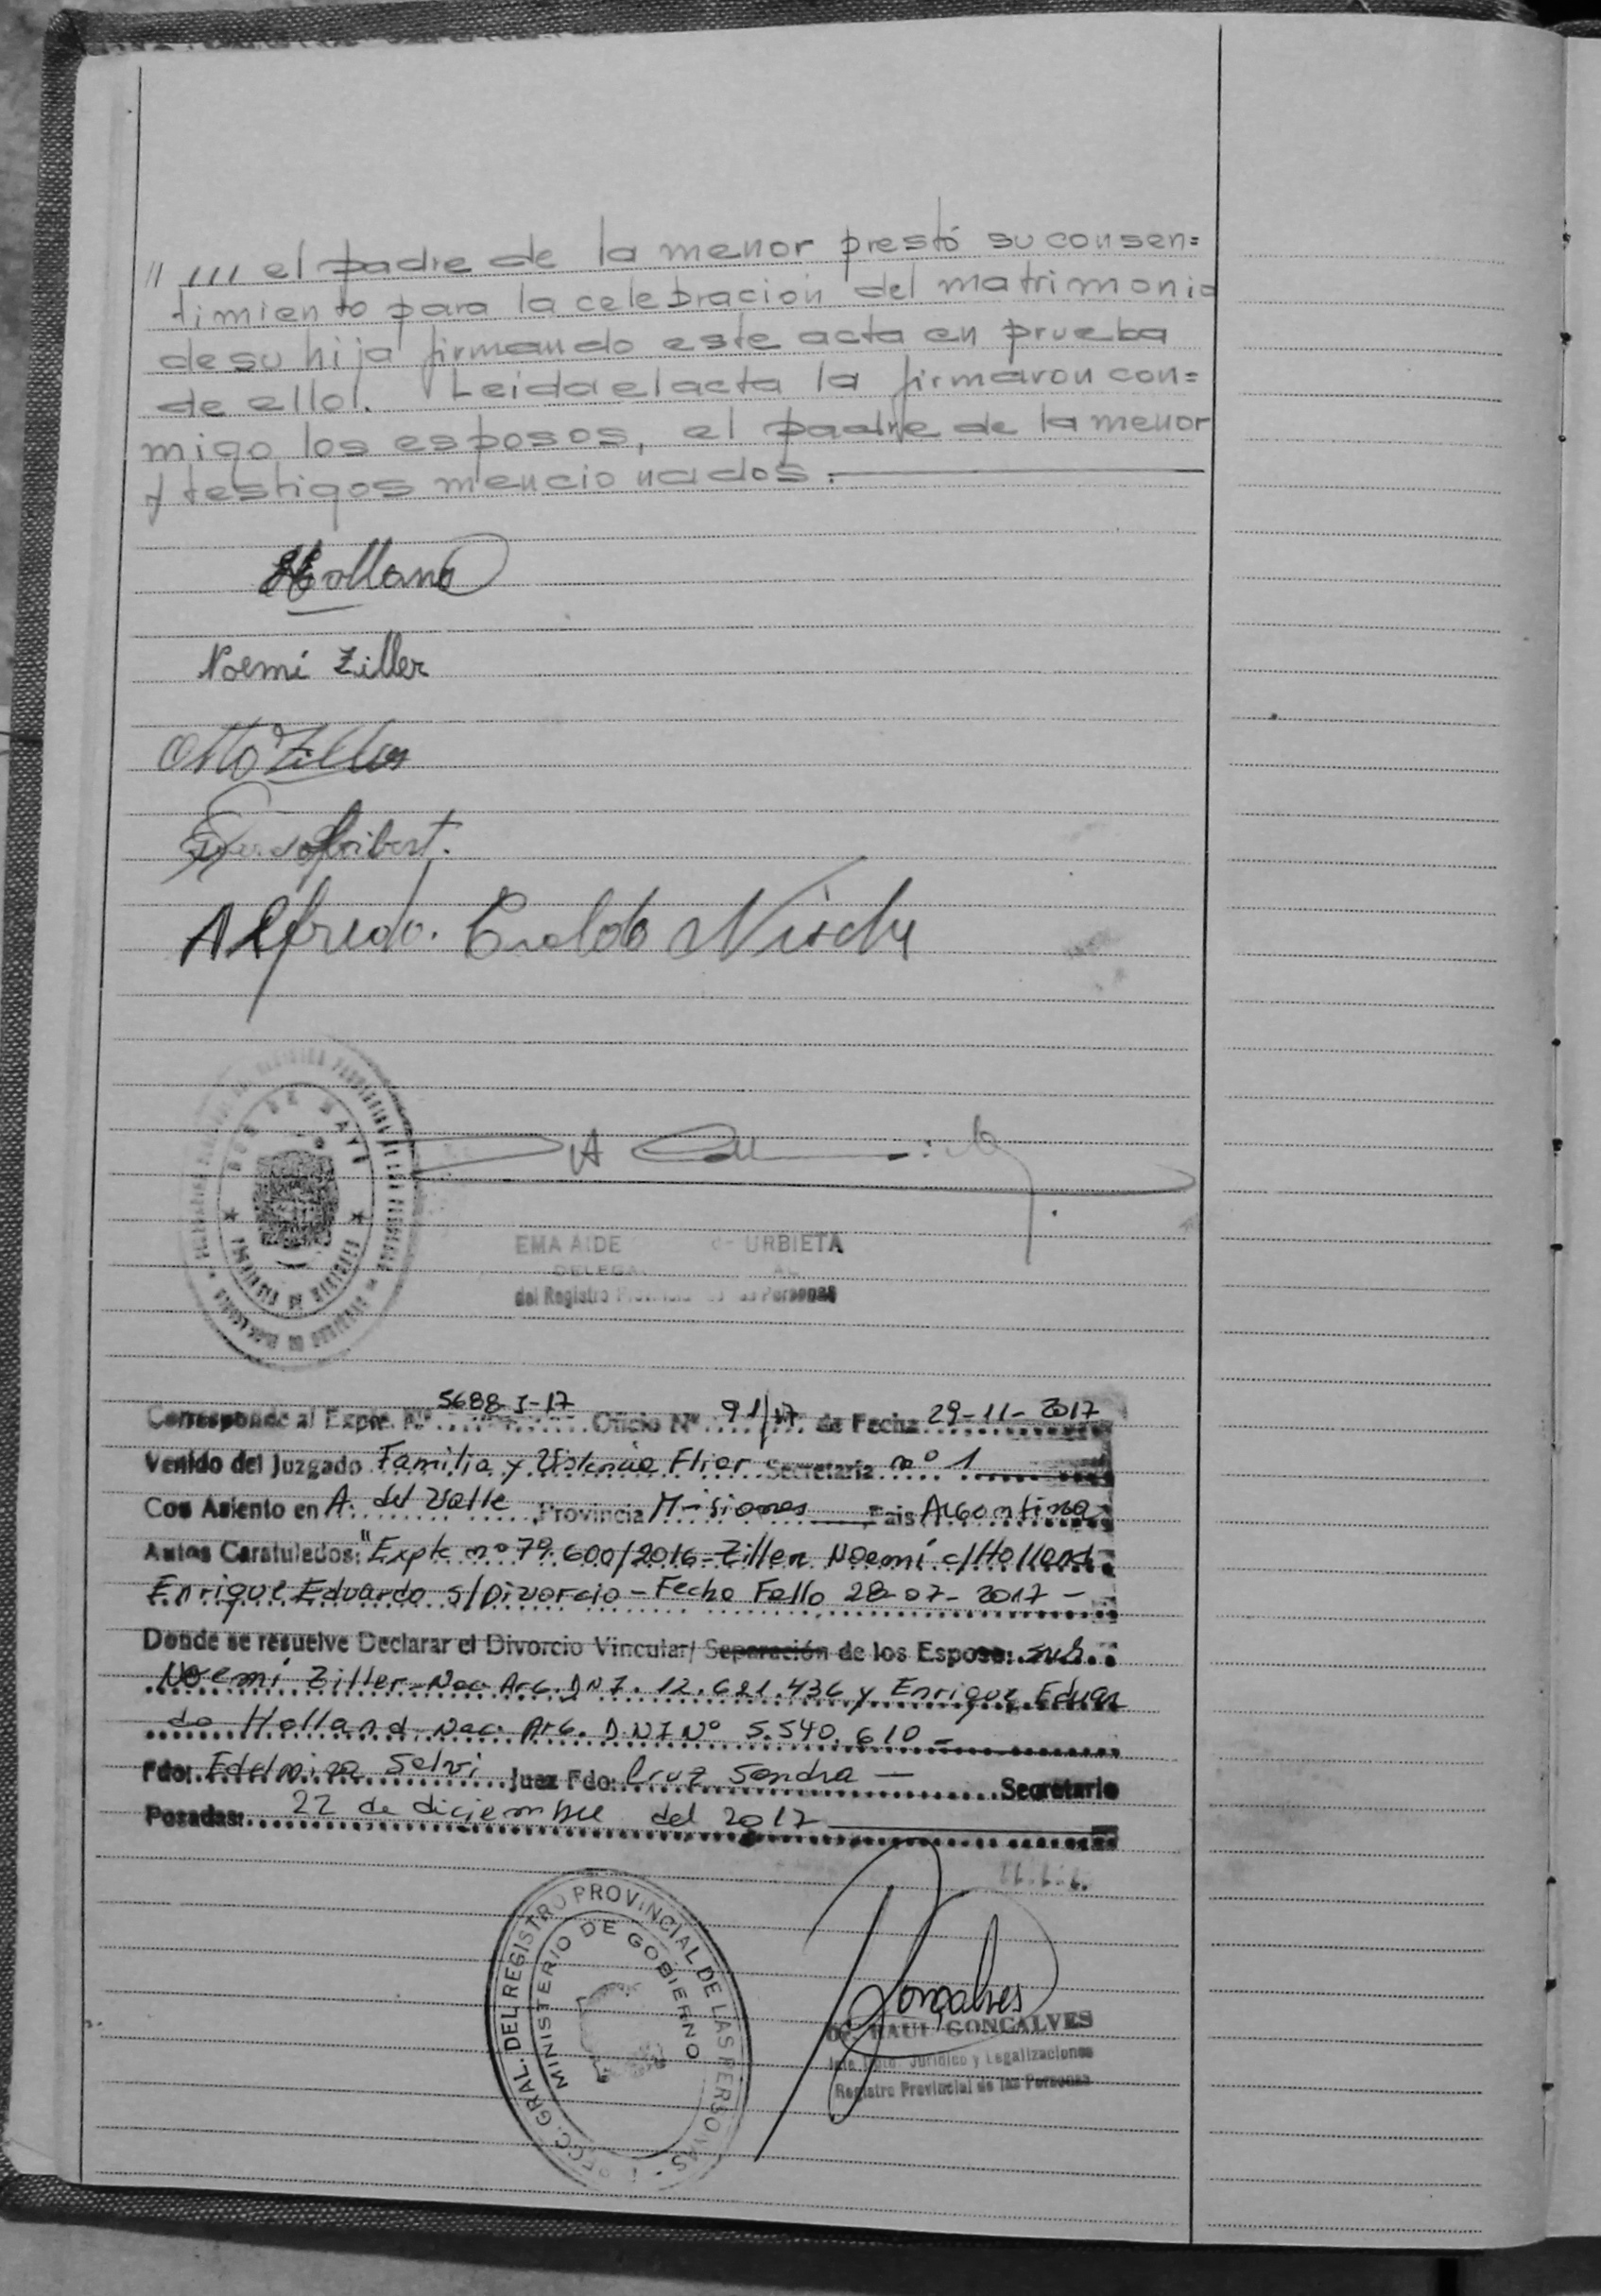 // ,,, el padre de la menor prestó su consen=
timiento para la celebracion del matrimonio
de su hija firmando este acta en prueba
de ello. Leida el acta la firmaron con=
migo los esposos, el padre de la menor
y testigos mencionados.
Holland
Noemí Ziller
Otto Ziller
Alfredo
EMA AIDE URBIETA
del Registro Personas
Corresponde al Expte. Nº 5688-I-17 Oficio Nº 91/17 de Fecha 29-11-2017
Venido del Juzgado Familia y Violencia Fliar Secretaría nº 1
Con Asiento en A. del Valle, Provincia Misiones País Argentina
Autos Caratulados: "Expte nº 79.600/2016-Ziller Noemí c/Holland
Enrique Eduardo s/Divorcio-Fecha Fallo 28-07-2017-
Donde se resuelve Declarar el Divorcio Vincular/ Separación de los Esposo:
Noemí Ziller-Nac. Arg. DNI. 12.621.436 y Enrique Eduar
do Holland. Nac. Arg. D.N.I Nº 5.540.610-
Fdo: Edelmira Selvi Juez Fdo: Cruz Sandra — Secretario
Posadas: 22 de diciembre del 2017
GRAL. DEL REGISTRO PROVINCIAL DE LAS PERSONAS
MINISTERIO DE GOBIERNO
Gonçalves
Dr. RAUL GONCALVES
Jefe Dpto. Jurídico y Legalizaciones
Registro Provincial de las Personas